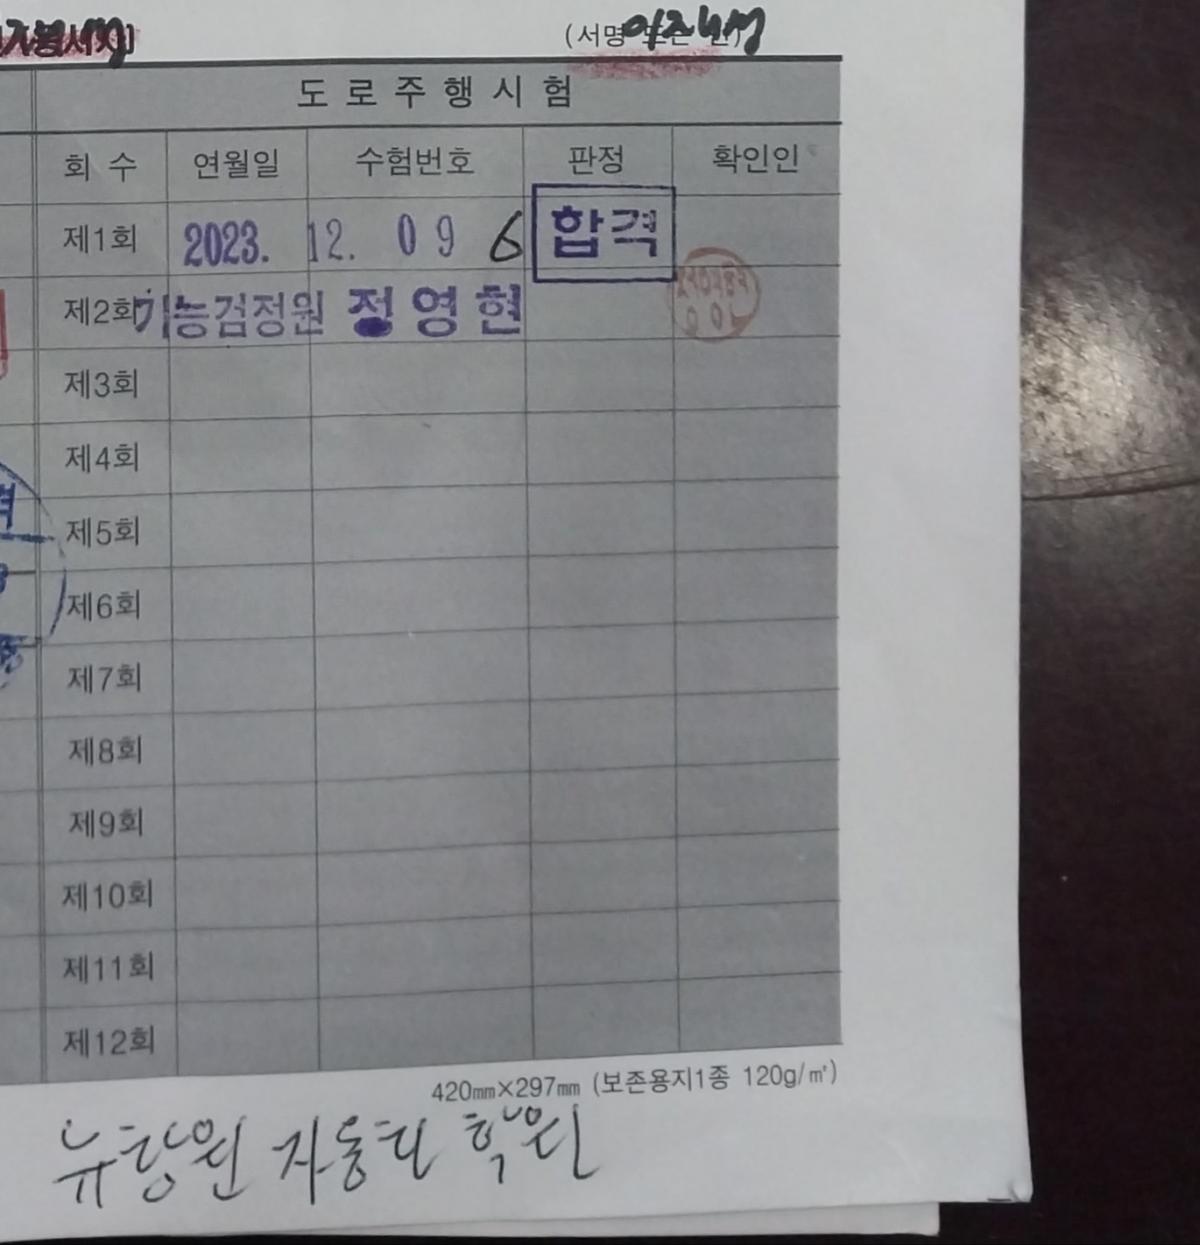 (서명 또는 인)
도로주행시험
회 수 연월일 수험번호 판정 확인인
제1회 2023. 12. 09 6 합격
제2회 기능검정원 정영현
제3회
제4회
제5회
제6회
제7회
제8회
제9회
제10회
제11회
제12회
420㎜×297㎜ (보존용지1종 120g/㎡)
뉴창원 자동차 학원